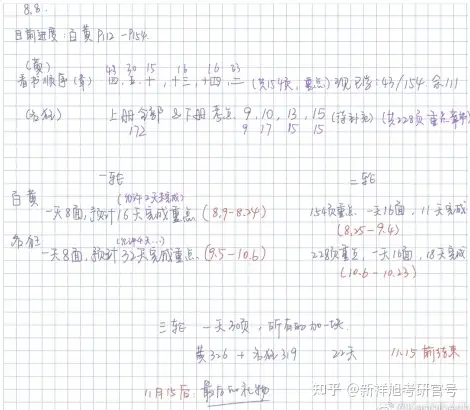 8.8.
目前进度：百黄 P112 - P154.
(黄) 43 30 15 16 16 23
看书顺序(章) 四,五,十,十三,十四,二 (共154页,重点) 现已看:43/154 余111
上册全部 & 下册考点 9, 10, 13, 15 (待补充) (共228页 重点章节)
172 9 17 15 15
一轮 二轮
百黄 (允许2天未完成)
一天8面,预计16天完成重点 (8.9-8.24) 154页重点 一天16面, 11天完成
(8.25-9.4)
一天8面,预计32天完成重点 (9.5-10.6) 228页重点,一天16面, 18天完成
(10.6-10.23)
三轮 一天30页,所有的加一块
黄326 + 319 22天 11.15前结束
11月15后: 最后的礼物
知乎 @新祥旭考研官号